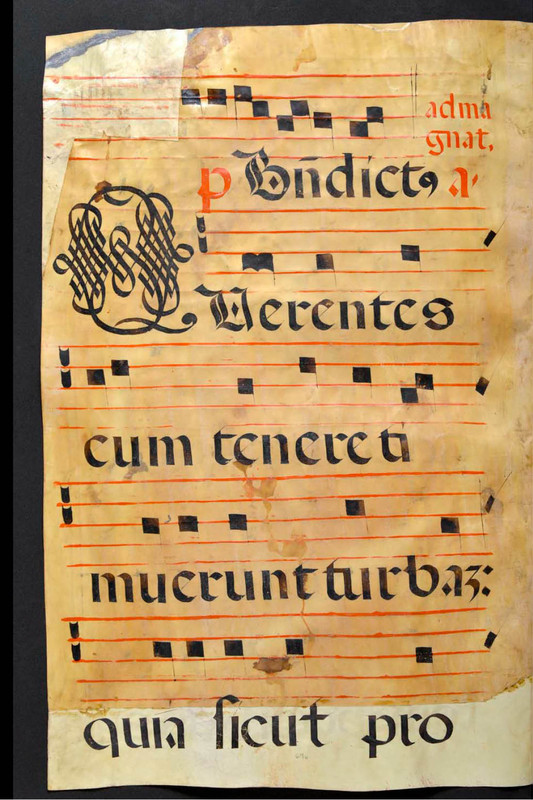 ad ma
gnat,
p Bn̄dictꝰ a'
QVerentes
cum tenere ti
muerunt turbaʒ:
quia sicut pro